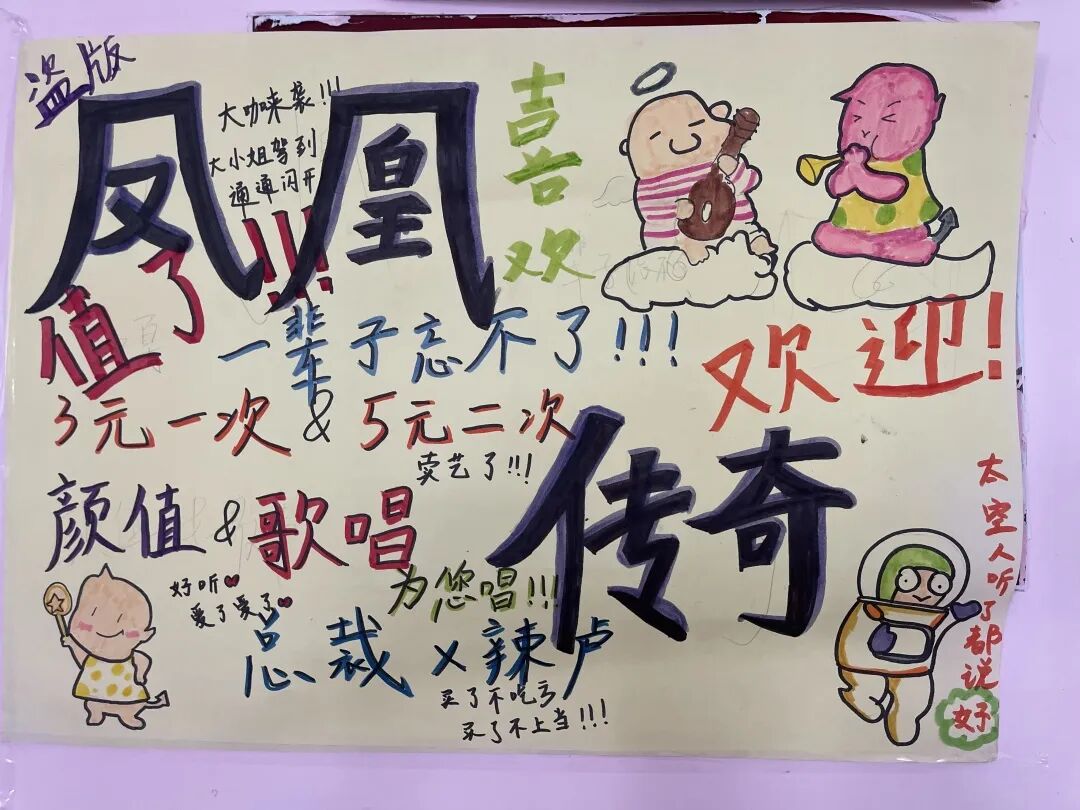 盗版
凤凰
大咖来袭!!!
大小姐驾到
通通闪开
!!!
喜欢
值了
一辈子忘不了!!!
欢迎!
3元一次 & 5元二次
卖艺了!!!
传奇
颜值 & 歌唱
好听
爱了爱了
为您唱!!!
总裁 × 辣卢
买了不吃亏
买了不上当!!!
太空人听了都说
好